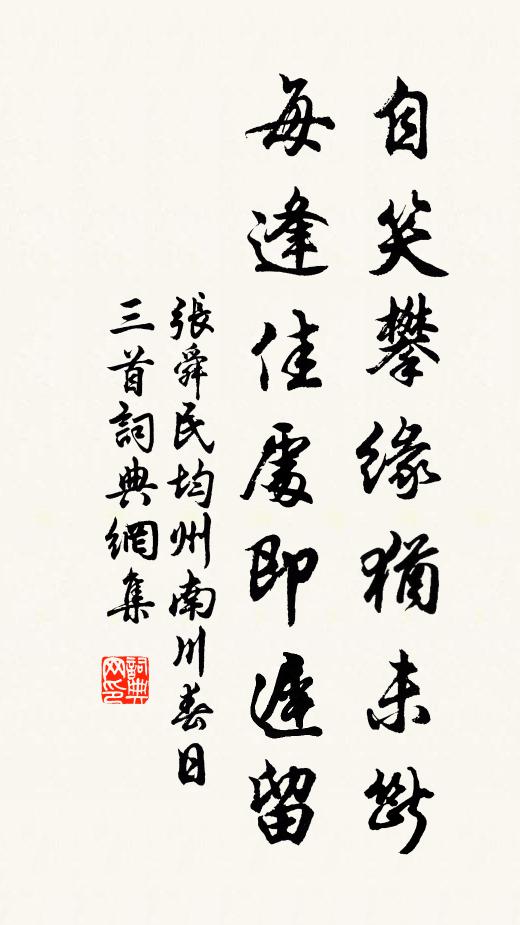 自笑攀緣猶未斷
每逢佳處即遲留
張舜民均州南川春日
三首詞典網集
詞典网印